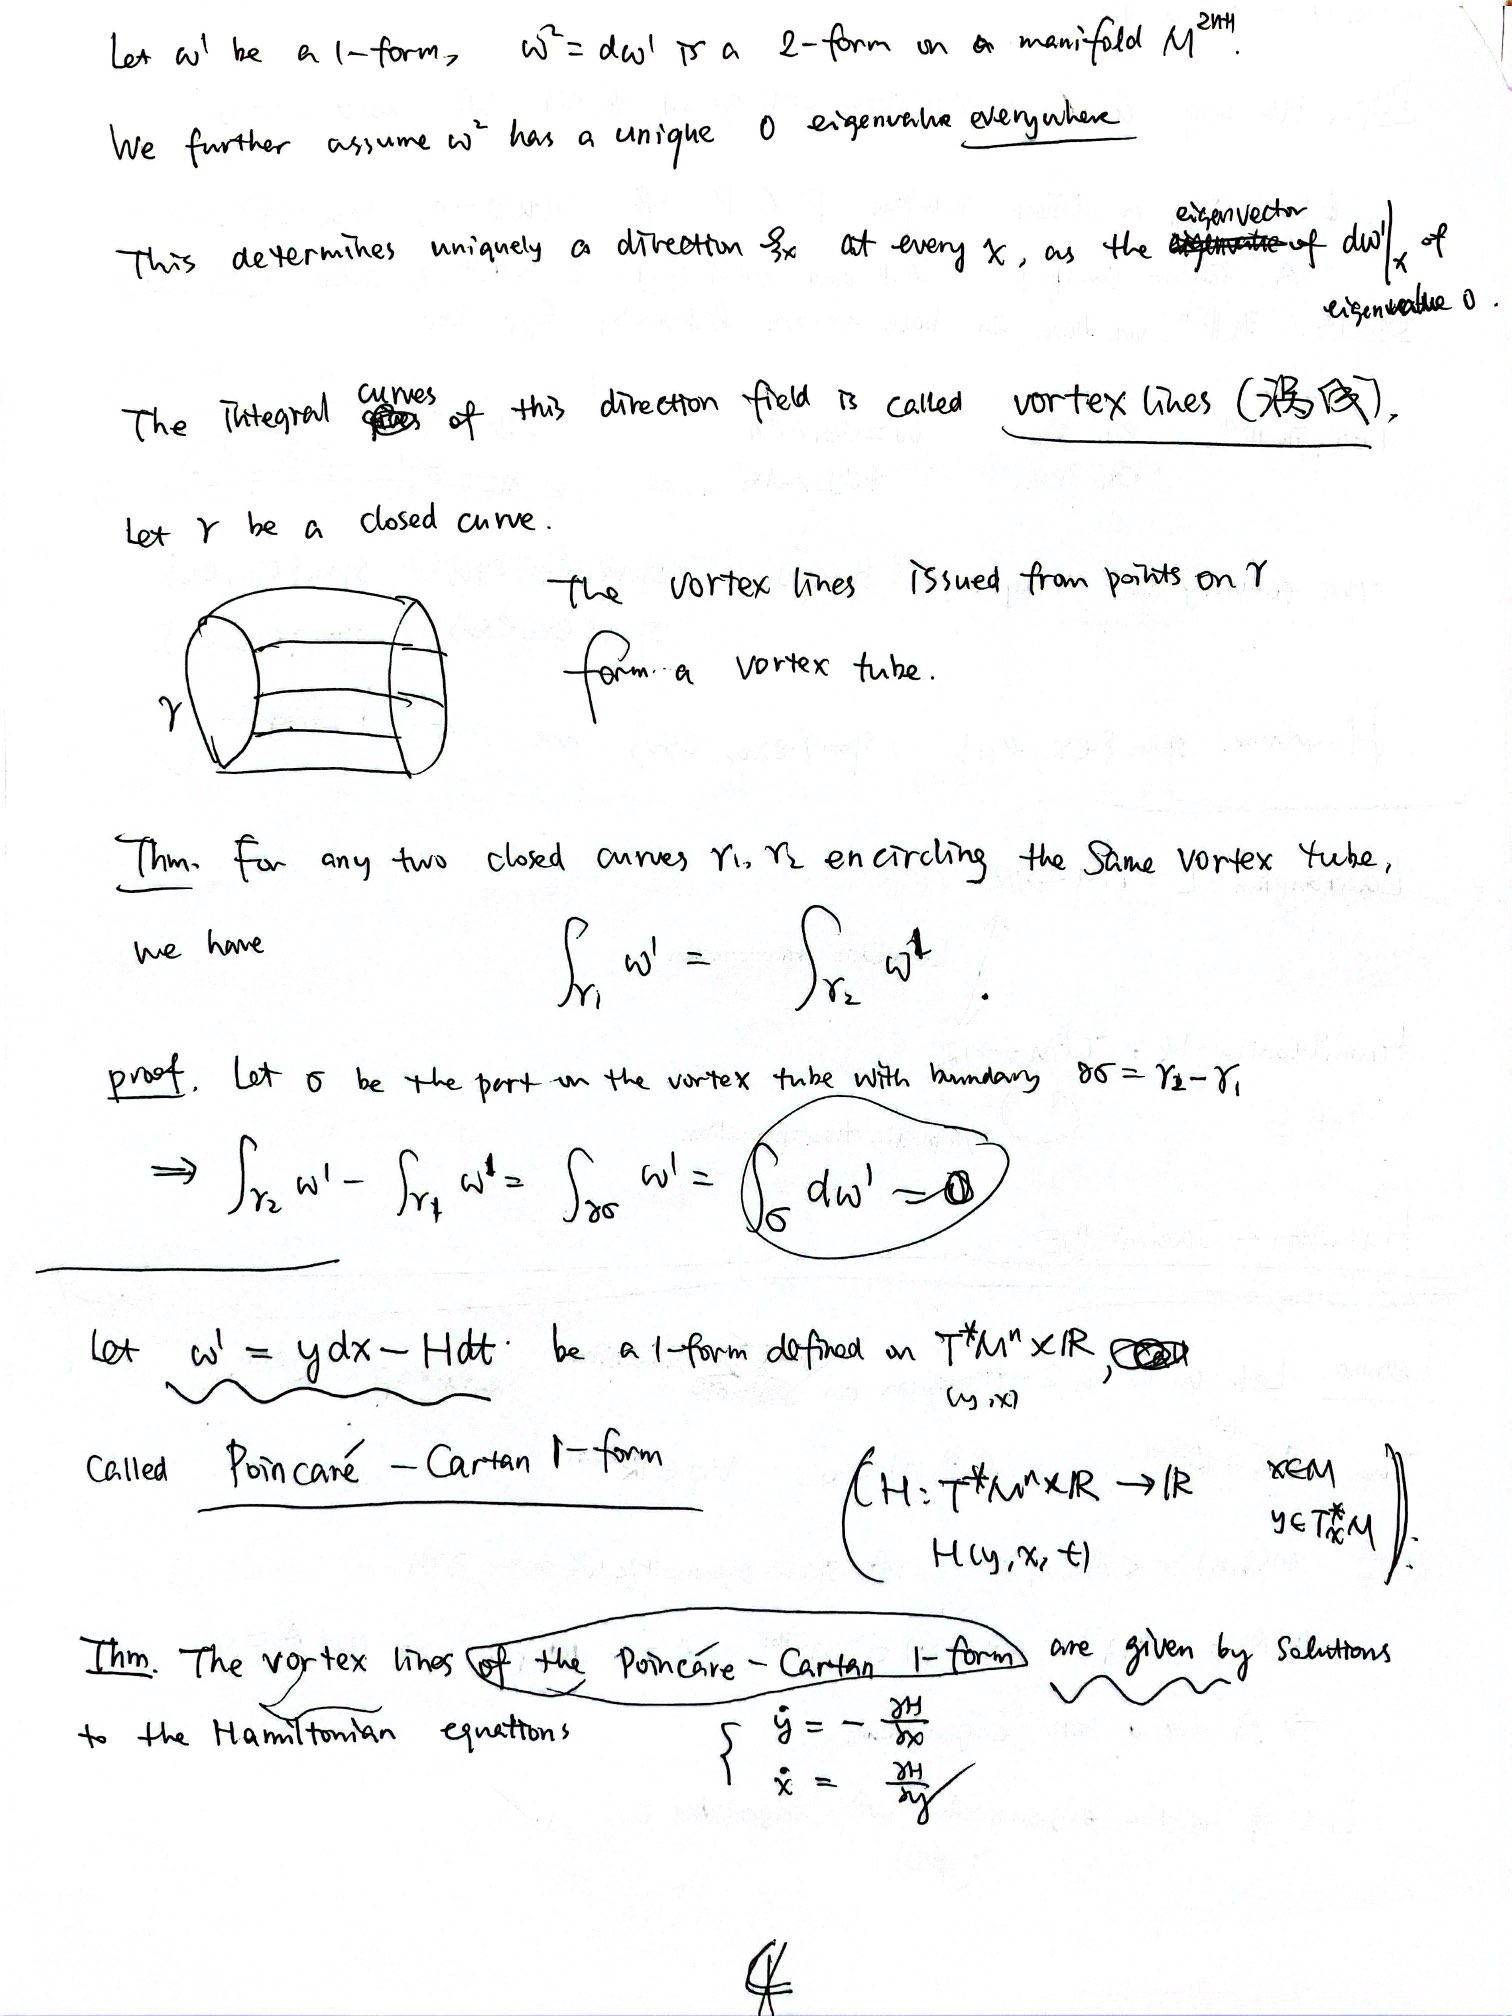 Let ω¹ be a 1-form, ω² = dω¹ is a 2-form on a manifold M²ⁿ⁺¹.
We further assume ω² has a unique 0 eigenvalue everywhere
This determines uniquely a direction ξₓ at every x, as the eigenvector of dω¹|ₓ of
eigenvalue 0.
The integral curves of this direction field is called vortex lines (涡线).
Let γ be a closed curve.
The vortex lines issued from points on γ
form a vortex tube.
γ
Thm. For any two closed curves γ₁, γ₂ encircling the same vortex tube,
we have ∫_γ₁ ω¹ = ∫_γ₂ ω¹.
proof. Let σ be the part on the vortex tube with boundary ∂σ = γ₂ - γ₁
⇒ ∫_γ₂ ω¹ - ∫_γ₁ ω¹ = ∫_∂σ ω¹ = ∫_σ dω¹ = 0
Let ω¹ = ydx - Hdt. be a 1-form defined on T*Mⁿ × ℝ,
(y, x)
Called Poincaré - Cartan 1-form
(H: T*Mⁿ × ℝ → ℝ x∈M
H(y, x, t) y∈Tₓ*M).
Thm. The vortex lines of the Poincáre - Cartan 1-form are given by solutions
to the Hamiltonian equations { ẏ = - ∂H/∂x
ẋ = ∂H/∂y